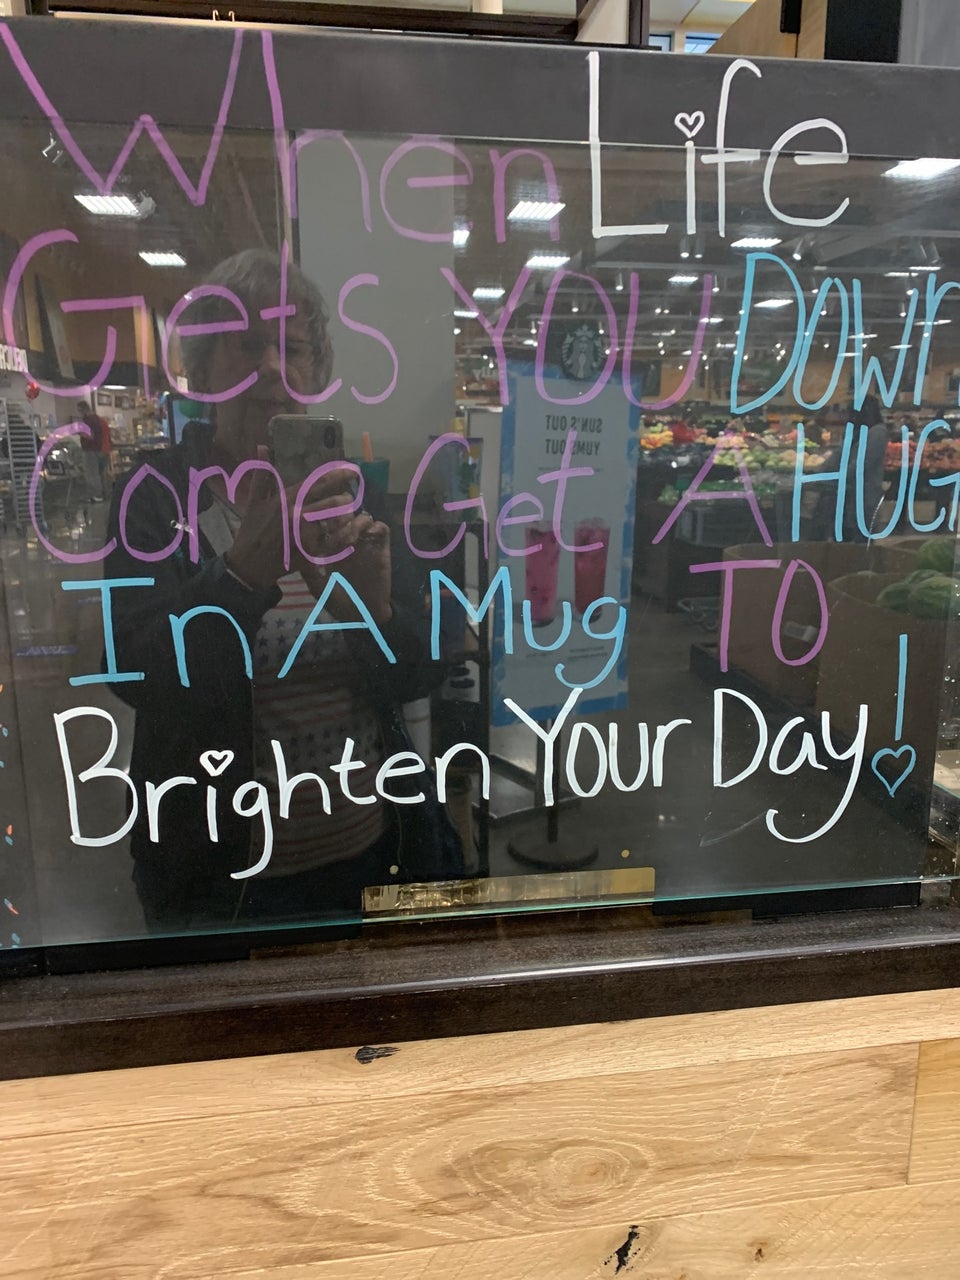 When Life
Gets YOU Down
Come Get A HUG
In A Mug TO
Brighten Your Day!
SUN'S OUT
YUMS OUT